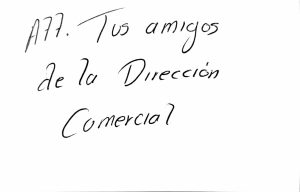 A77. Tus amigos
de la Dirección
Comercial